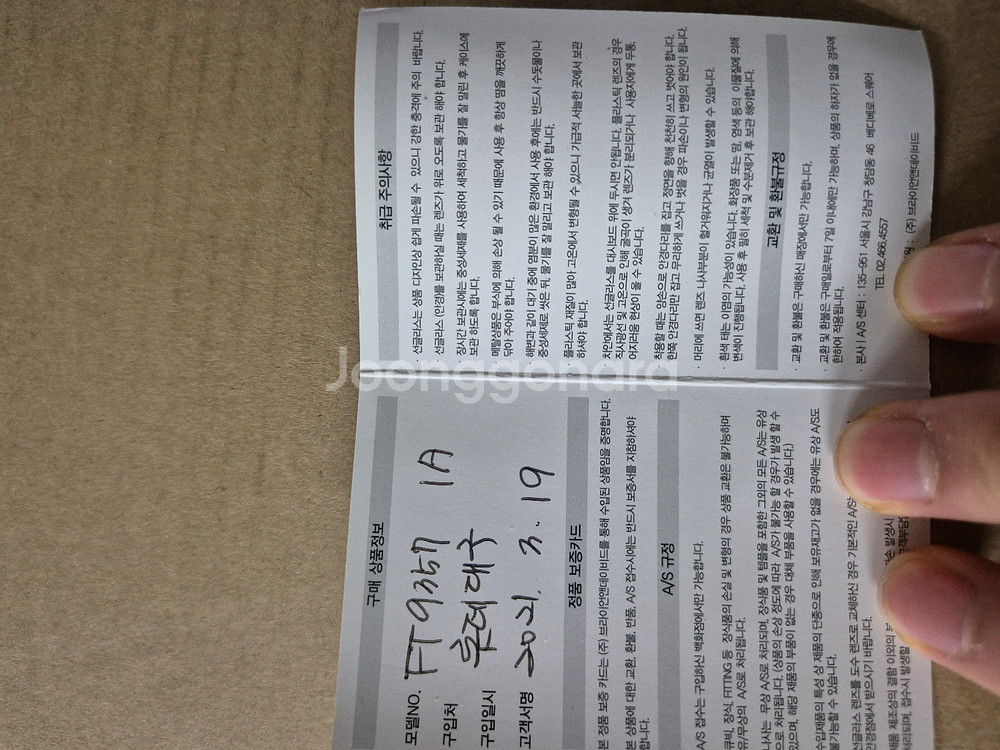 구매 상품정보
모델NO. FT9357 1A
구입처 현대대구
구입일시 2021. 3. 19
고객서명
정품 보증카드
본 정품 보증 카드는 (주) 브라이언앤데이비드를 통해 수입된 상품임을 증명합니다.
본 상품에 대한 교환, 환불, 반품, A/S 접수시에는 반드시 보증서를 지참하셔야
합니다.
A/S 규정
A/S 접수는 구입하신 백화점에서만 가능합니다.
큐빅, 장식, FITTING 등 장식품의 손실 및 변형의 경우 상품 교환은 불가능하며
유/무상의 A/S로 처리됩니다.
나사는 무상 A/S로 처리되며, 장식품 및 템플을 포함한 그외의 모든 A/S는 유상
으로 처리됩니다. (상품의 손상 정도에 따라 A/S가 불가능 할 경우가 발생 할 수
있으며, 해당 제품의 부품이 없는 경우 대체 부품을 사용할 수 있습니다.)
수입제품의 특성 상 제품의 단종으로 인해 보유재고가 없을 경우에는 유상 A/S도
불가능할 수 있습니다.
선글라스 렌즈를 도수 렌즈로 교체하신 경우 기본적인 A/S
안경점에서 받으시기 바랍니다.
제품 제조상의 결함 이외의 부
처리되며, 접수시 발생할
취급 주의사항
· 선글라스는 상품 디자인상 쉽게 파손될 수 있으니 강한 충격에 주의 바랍니다.
· 선글라스 (안경)를 보관하실 때는 렌즈가 위로 오도록 보관 해야 합니다.
· 장시간 보관시에는 중성세제를 사용하여 세척하고 물기를 잘 말린 후 케이스에
보관 하도록 합니다.
· 메탈상품은 부식에 의해 손상 될 수 있기 때문에 사용 후 항상 땀을 깨끗하게
닦아 주어야 합니다.
· 해변과 같이 대기 중에 염분이 많은 환경에서 사용 후에는 반드시 수돗물이나
중성세제로 씻은 뒤, 물기를 잘 말리고 보관 해야 합니다.
· 플라스틱 재질이 많아 고온에서 변형될 수 있으니 가급적 서늘한 곳에서 보관
하셔야 합니다.
· 차안에서는 선글라스를 대시보드 위에 두시면 안됩니다. 플라스틱 렌즈의 경우
직사광선 및 고온으로 인해 굴곡이 생겨 렌즈가 분리되거나 사용자에게 두통,
어지러움 현상이 올 수 있습니다.
· 착용할 때는 양손으로 안경다리를 잡고 정면을 향해 천천히 쓰고 벗어야 합니다.
한쪽 안경다리만 잡고 무리하게 쓰거나 벗을 경우 파손이나 변형의 원인이 됩니다.
· 머리에 쓰면 렌즈 나사부분이 헐거워지거나 균열이 발생할 수 있습니다.
· 흰색 테는 이염의 가능성이 있습니다. 화장품 또는 땀, 염색 등의 이물질에 의해
변색이 진행됩니다. 사용 후 필히 세척 및 수분제거 후 보관 해야합니다.
교환 및 환불규정
· 교환 및 환불은 구매하신 매장에서만 가능합니다.
· 교환 및 환불은 구매일로부터 7일 이내에만 가능하며, 상품의 하자가 없을 경우에
한하여 적용됩니다.
· 본사 | A/S 센터 : 135-951 서울시 강남구 청담동 46 베디베로 스퀘어
TEL 02.466.4557
원 : (주) 브라이언앤데이비드
Joonggonara